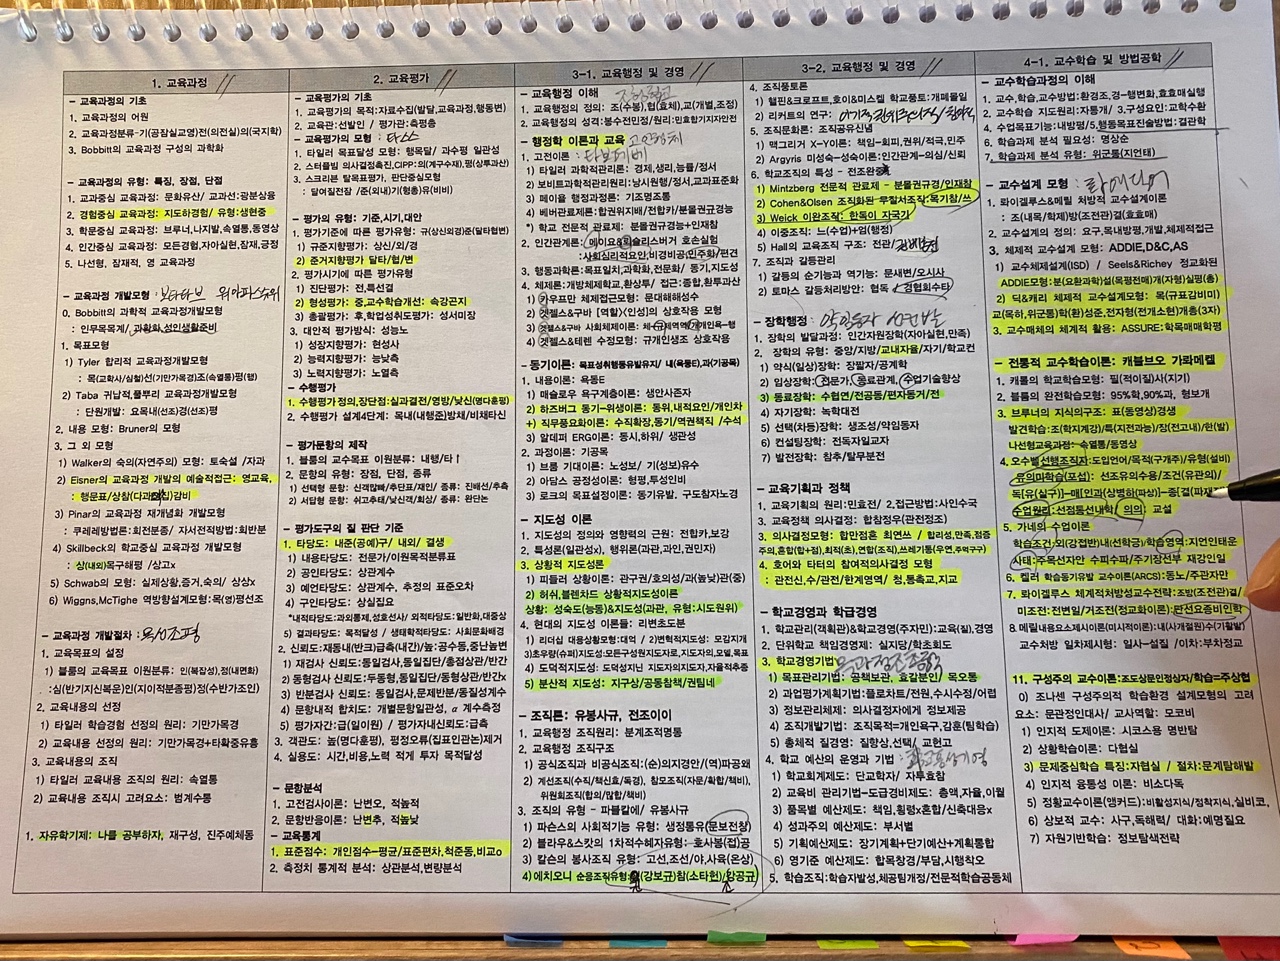 1. 교육과정
- 교육과정의 기초
1. 교육과정의 어원
2. 교육과정분류-기(공잠실교영)전(의전실)의(국지학)
3. Bobbitt의 교육과정 구성의 과학화
- 교육과정의 유형: 특징, 장점, 단점
1. 교과중심 교육과정: 문화유산/ 교과선: 광분상융
2. 경험중심 교육과정: 지도하경험/ 유형:생현중
3. 학문중심 교육과정: 브루너, 나지발, 속열통, 동영상
4. 인간중심 교육과정: 모든경험,자아실현,잠재,긍정
5. 나선형, 잠재적, 영 교육과정
- 교육과정 개발모형:
0. Bobbitt의 과학적 교육과정개발모형
: 인무목목계/ 과활화,성인생활준비
1. 목표모형
1) Tyler 합리적 교육과정개발모형
: 목(교학사/심철)선(기만가목경)조(속열통)평(행)
2) Taba 귀납적,풀뿌리 교육과정개발모형
: 단원개발: 요목내(선조)경(선조)평
2. 내용 모형: Bruner의 모형
3. 그 외 모형
1) Walker의 숙의(자연주의) 모형: 토숙설 /자과
2) Eisner의 교육과정 개발의 예술적접근: 영교육,
3) Pinar의 교육과정 재개념화 개발모형
: 쿠레레방법론:회전분종/ 자서전적방법:회반분
4) Skillbeck의 학교중심 교육과정 개발모형
: 상(내외)목구해평 /상고x
5) Schwab의 모형: 실제상황,증거,숙의/ 상상x
6) Wiggns,McTighe 역방향설계모형:목(영)평선조
- 교육과정 개발절차:
1. 교육목표의 설정
1) 블룸의 교육목표 이원분류: 인(복잡성),정(내면화)
2. 교육내용의 선정
1) 타일러 학습경험 선정의 원리: 기만가목경
2) 교육내용 선정의 원리: 기만가목경+타확중유흥
3. 교육내용의 조직
1) 타일러 교육내용 조직의 원리: 속열통
2) 교육내용 조직시 고려요소: 범계수통
1. 자유학기제: 나를 공부하자, 재구성, 진주예체동
2. 교육평가
- 교육평가의 기초
1. 교육평가의 목적:자료수집(발달,교육과정,행동변)
2. 교육관:선발인 / 평가관:측평총
- 교육평가의 모형 :
1. 타일러 목표달성 모형: 행목달/ 과수평 일관성
3. 스크리븐 탈목표평가, 판단중심모형
: 달여질전잠 /준(외내)기(형총)유(비비)
- 평가의 유형: 기준,시기,대안
1. 평가기준에 따른 평가유형: 규(상신외경)준(달타협변)
1) 규준지향평가: 상신/외/경
2) 준거지향평가 달타/협/변
2. 평가시기에 따른 평가유형
1) 진단평가: 전,특선결
2) 형성평가: 중,교수학습개선: 속강곤지
3) 총괄평가: 후,학업성취도평가: 성서미장
3. 대안적 평가방식: 성능노
1) 성장지향평가: 현성사
2) 능력지향평가: 능낮측
3) 노력지향평가: 노열측
- 수행평가
1. 수행평가정의,장단점:실과결전/영방/낮신(명다훈평)
2. 수행평가 설계4단계: 목내(내행준)방채/비채타신
- 평가문항의 제작
1. 블룸의 교수목표 이원분류: 내행/타↑
2. 문항의 유형: 장점, 단점, 종류
- 평가도구의 질 판단 기준
1. 타당도: 내준(공예)구/ 내외/ 결생
1) 내용타당도: 전문가/이원목적분류표
2) 공인타당도: 상관계수
3) 예언타당도: 상관계수, 추정의 표준오차
4) 구인타당도: 상실집요
5) 결과타당도: 목적달성 / 생태학적타당도: 사회문화배경
2. 신뢰도:재동내(반크)급측(내간)/높:공수동,중난높변
1) 재검사 신뢰도: 동일검사,동일집단/총점상관/반간
2) 동형검사 신뢰도: 두동형,동일집단/동형상관/반간x
3) 반분검사 신뢰도: 동일검사,문제반분/동질성계수
4) 문항내적 합치도: 개별문항일관성, α 계수측정
5) 평가자간:급(일이원) / 평가자내신뢰도:급측
3. 객관도: 높(명다훈평), 평정오류(집표인관논)제거
4. 실용도: 시간,비용,노력 적게 투자 목적달성
- 문항분석
1. 고전검사이론: 난변오, 적높적
2. 문항반응이론: 난변추, 적높낮
- 교육통계
1. 표준점수: 개인점수-평균/표준편차,척준동,비교o
2. 측정치 통계적 분석: 상관분석,변량분석
3-1. 교육행정 및 경영
- 교육행정 이해
1. 교육행정의 정의: 조(수봉),협(효체),교(개별,조정)
2. 교육행정의 성격:봉수전민정/원리:민효합기지자안전
- 행정학 이론과 교육
1. 고전이론:
1) 테일러 과학적관리론: 경제,생리,능률/정서
2) 보비트과학적관리원리:낭시원행/정서,교과표준화
3) 페이욜 행정과정론: 기조명조통
4) 베버관료제론:합권위지배/전합카/분몰권규경능
*) 학교 전문적 관료제: 분몰권규경능+인재참
2. 인간관계론: 메이요&뢰슬리스버거 호손실험
: 사회심리적요인,비경비공,민주화/편견
3. 행동과학론: 목표일치,과학화,전문화/ 동기,지도성
4. 체제론: 개방체제학교,환상투/ 접근:종합,환투과산
1) 카우프만 체제접근모형: 문대해해성수
2) 겟젤스&구바 [역할]<인성]의 상호작용 모형
4) 겟젤스&테렌 수정모형: 규개인생조 상호작용
- 동기이론: 목표성취행동유발유지/ 내(욕동E),과(기공목)
1. 내용이론: 욕동E
1) 매슬로우 욕구계층이론: 생안사존자
2) 하즈버그 동기-위생이론: 동위,내적요인/개인차
+) 직무풍요화이론: 수직확장,동기/역권책직 /수석
3) 알데퍼 ERG이론: 동시,하위/ 생관성
2. 과정이론: 기공목
1) 브룸 기대이론: 노성보/ 기(성보)유수
2) 아담스 공정성이론: 형평,투성인비
3) 로크의 목표설정이론: 동기유발, 구도참자노경
- 지도성 이론
1. 지도성의 정의와 영향력의 근원: 전합카,보강
2. 특성론(일관성x), 행위론(과관,과인,권민자)
3. 상황적 지도성론
1) 피들러 상황이론: 관구권/호의성/과(높낮)관(중)
2) 허쉬,블렌차드 상황적 지도성이론
상황: 성숙도(능동)&지도성(과관, 유형:시도원위)
4. 현대의 지도성 이론들: 리변초도분
4) 도덕적지도성: 도덕성지닌 지도자의지도자,자율적추종
5) 분산적 지도성: 지구상/공통참책/권팀네
- 조직론: 유봉사규, 전조이이
1. 교육행정 조직원리: 분계조적명통
2. 교육행정 조직구조
1) 공식조직과 비공식조직:(순)의지경안/(역)파공왜
2) 계선조직(수직/책신효/독경), 참모조직(자문/확합/책비),
위원회조직(합의/많합/책비)
3. 조직의 유형 - 파블칼에/ 유봉사규
1) 파슨스의 사회적기능 유형: 생정통유(문보전창)
2) 블라우&스캇의 1차적수혜자유형: 호사봉(접)공
3) 칼슨의 봉사조직 유형: 고선,조선/야,사육(온상)
3-2. 교육행정 및 경영
4. 조직풍토론
1) 핼핀&크로프트,호이&미스켈 학교풍토:개폐몰일
2) 리커트의 연구:
5. 조직문화론: 조직공유신념
1) 맥그리거 X-Y이론: 책임-회피,권위/적극,민주
2) Argyris 미성숙-성숙이론:인간관계-의심/신뢰
6. 학교조직의 특성 -
1) Mintzberg 전문적 관료제 - 분몰권규경/인재참
2) Cohen&Olsen 조직화된 무질서조직:목기참/쓰
3) Weick 이완조직: 한독이 자국기
4) 이중조직: 느(수업)+엄(행정)
5) Hall의 교육조직 구조: 전관/
7. 조직과 갈등관리
1) 갈등의 순기능과 역기능: 문새변/오시사
2) 토마스 갈등처리방안: 협목 /경협회수타
- 장학행정:
1. 장학의 발달과정: 인간자원장학(자아실현,만족)
2. 장학의 유형: 중앙/지방/교내자율/자기/학교컨
1) 약식(일상)장학: 장짧자/공계학
2) 임상장학: 전문가,동료관계,수업기술향상
3) 동료장학: 수협연/전공동/편자동거/전
4) 자기장학: 녹학대전
5) 선택(차등)장학: 생초성/약임동자
6) 컨설팅장학: 전독자일교자
7) 발전장학: 참추/탈무분전
- 교육기획과 정책
1. 교육기획의 원리:민효전/ 2.접근방법:사인수국
2. 교육정책 의사결정: 합참정우(관전정조)
3. 의사결정모형: 합만점혼 최연쓰 / 합리성,만족,점증
주의,혼합(합+점),최적(초),연합(조직),쓰레기통(우연,주먹구구)
4. 호이와 타터의 참여적의사결정 모형
: 관전신,수/관전/한계영역/ 청,통촉교,지교
- 학교경영과 학급경영
1. 학교관리(객획관)&학교경영(주자민):교육(질),경영
2. 단위학교 책임경영제: 실지당/학초회도
3. 학교경영기법:
1) 목표관리기법: 공책보관, 효갈분인/ 목오통
2) 과업평가계획기법:플로차트/전원,수시수정/어렵
3) 정보관리체제: 의사결정자에게 정보제공
4) 조직개발기법: 조직목적=개인욕구,감훈(팀학습)
5) 총체적 질경영: 질향상,선택/ 교헌고
4. 학교 예산의 운영과 기법 :
1) 학교회계제도: 단교학자/ 자투효참
2) 교육비 관리기법-도급경비제도: 총액,자율,이월
3) 품목별 예산제도: 책임,횡령x혼합/신축대응x
4) 성과주의 예산제도: 부서별
5) 기획예산제도: 장기계획+단기예산+계획통합
6) 영기준 예산제도: 합목창경/부담,시행착오
5. 학습조직:학습자발성,체공팀개정/전문적학습공동체
4-1. 교수학습 및 방법공학
- 교수학습과정의 이해
1. 교수,학습,교수방법:환경조,경-행변화,효효매실행
2. 교수학습 지도원리:자통개/ 3.구성요인:교학수환
4. 수업목표기능:내방평/5.행동목표진술방법:결관학
6. 학습과제 분석 필요성: 명상순
7. 학습과제 분석 유형: 위군통(지언태)
- 교수설계 모형:
1. 롸이겔루스&메릴 처방적 교수설계이론
: 조(내목/학제)방(조전관)결(효효매)
2. 교수설계의 정의: 요구,목내방평,개발,체제적접근
3. 체제적 교수설계 모형: ADDIE,D&C,AS
1) 교수체제설계(ISD) / Seels&Richey 정교화된
ADDIE모형:분(요환과학)설(목평전매)개(자형)실평(총)
2) 딕&캐리 체제적 교수설계모형: 목(규표감비미)
교(목하,위군통)학(환)성준,전자형(전소개현)개총(3자)
3) 교수매체의 체계적 활용: ASSURE:학목매매학평
- 전통적 교수학습이론: 캐블브오 가롸메켈
1. 캐롤의 학교학습모형: 필(적이질)시(지기)
2. 블룸의 완전학습모형: 95%학,90%과, 형보개
3. 브루너의 지식의구조: 표(동영상)경생
발견학습: 조(학지계강)특(지전과능)/장(전고내)/한(발)
나선형교육과정: 속열통/동영상
5. 가네의 수업이론
학습조건:외(강접반)내(선학긍)/학습영역:지언인태운
사태:주목선자안 수피수파/주기장선부 재강인일
6. 켈러 학습동기유발 교수이론(ARCS):동노/주관자만
7. 롸이겔루스 체계적처방성교수전략:조방(조전관)결/
미조전:전변일/거조전(정교화이론):관선요종비인학
8.메릴내용요소제시이론(미시적이론):내(사개절원)수(기활발)
교수처방 일차제시형: 일사-설질 /이차:부차정교
11. 구성주의 교수이론:조도상문인정상자/학습=주상협
0) 조나센 구성주의적 학습환경 설계모형의 고려
요소: 문관정인대사/ 교사역할: 모코비
1) 인지적 도제이론: 시코스용 명반탐
2) 상황학습이론: 다협실
3) 문제중심학습 특징:자협실 / 절차:문계탐해발
4) 인지적 융통성 이론: 비소다독
5) 정황교수이론(앵커드):비활성지식/정착지식,실비코,
6) 상보적 교수: 사구,독해력/ 대화:예명질요
7) 자원기반학습: 정보탐색전략